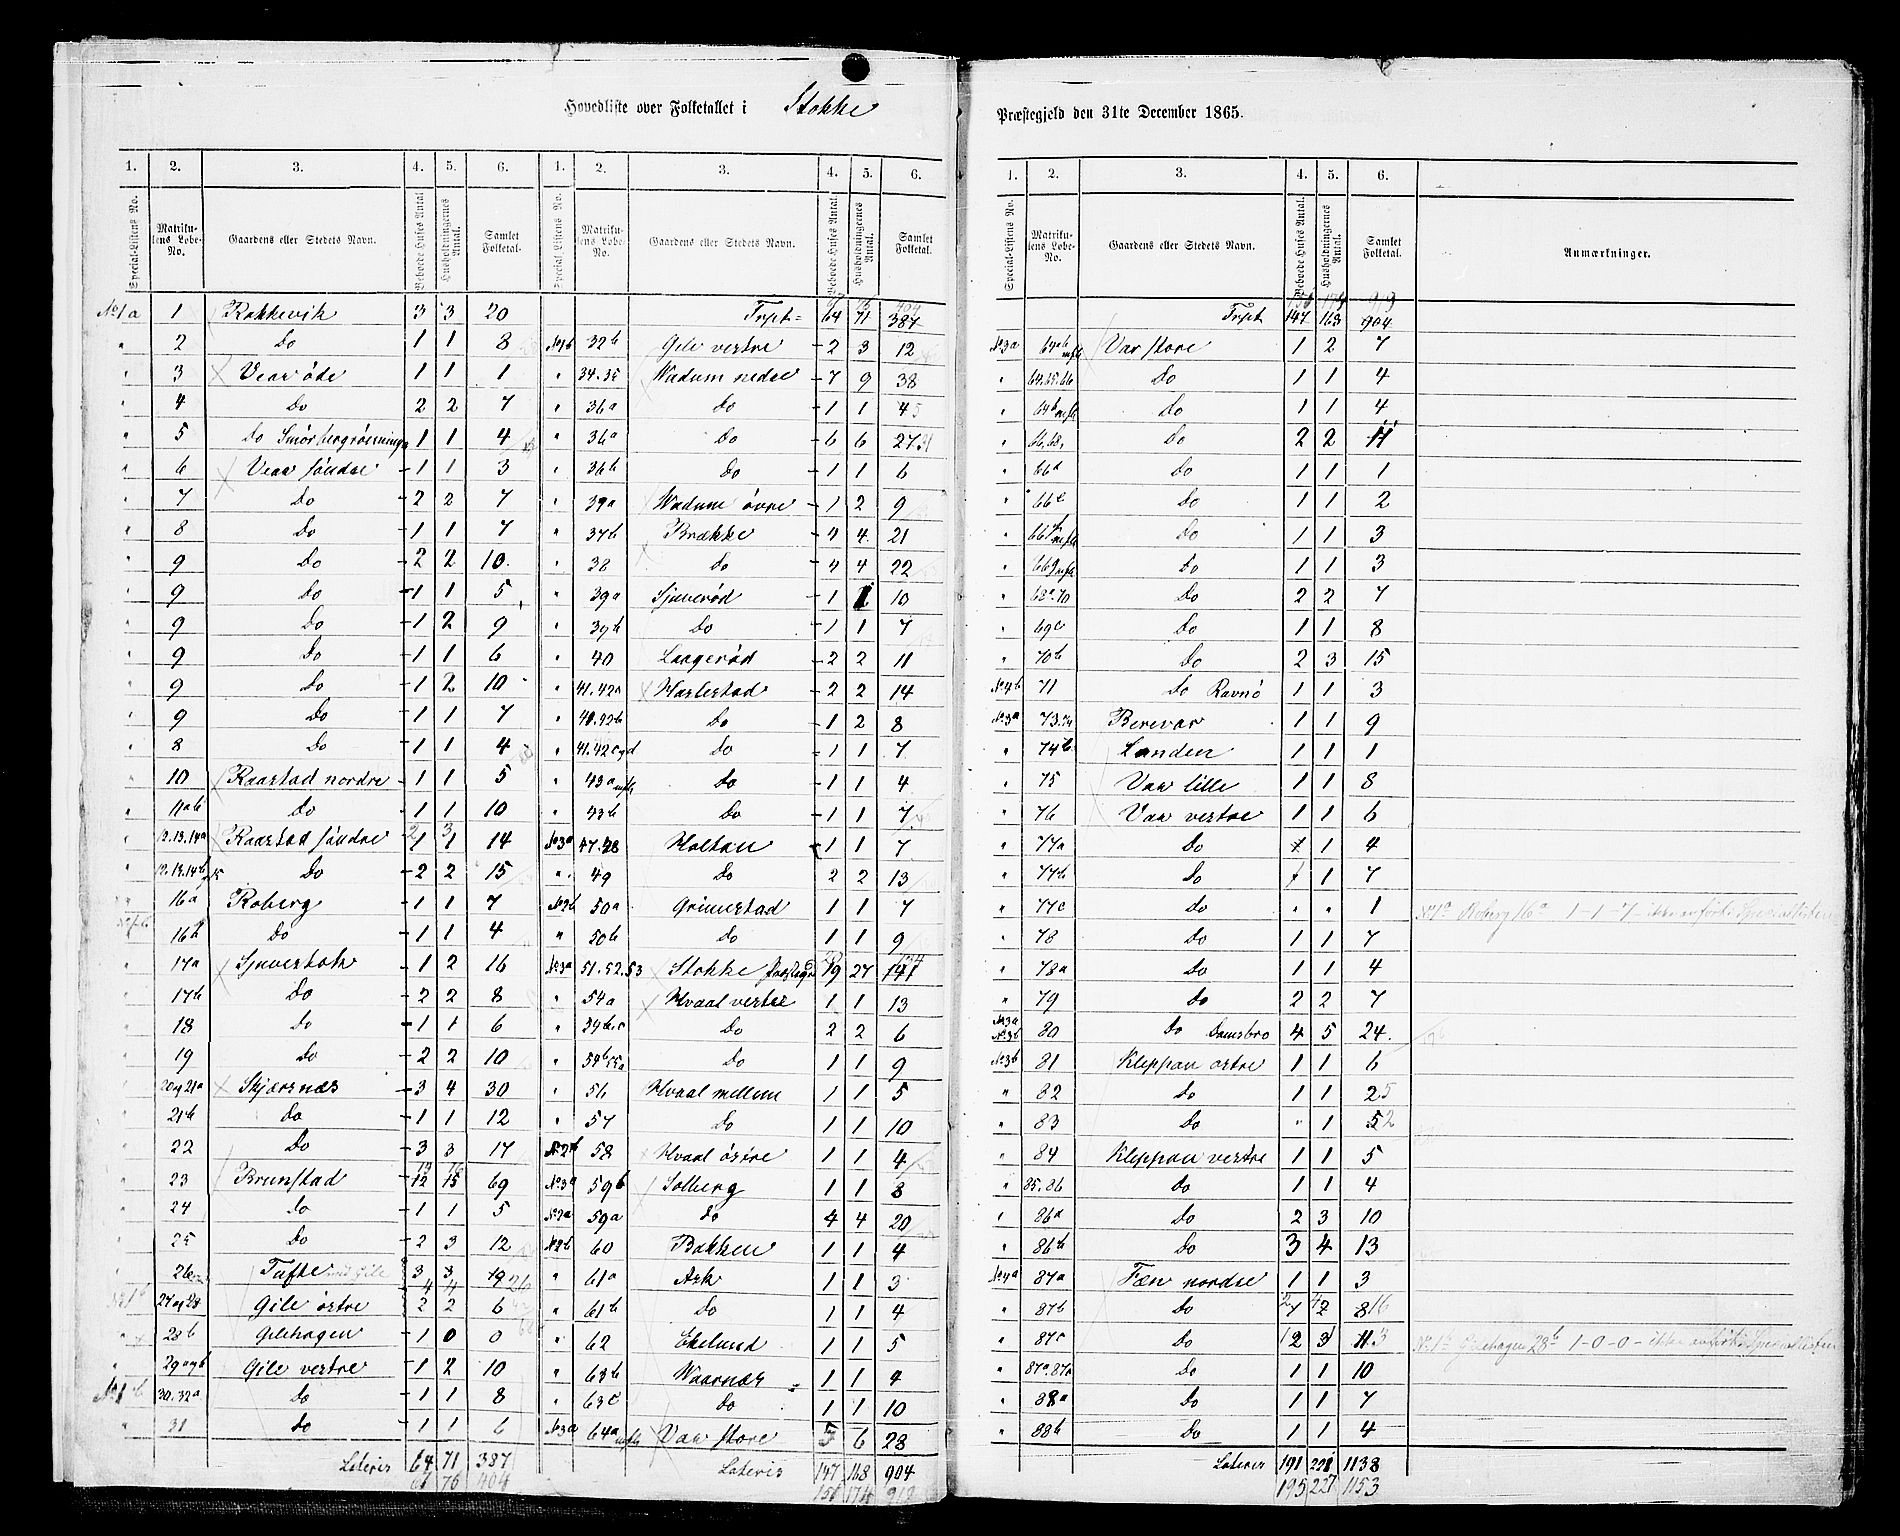 Hovedliste over Folketallet i Stokke
Præstegjeld den 31te December 1865.
1. 2. 3. 4. 5. 6. 1. 2. 3. 4. 5. 6.
Special-Listens No. Matrikulens Løbe-No. Gaardens eller Stedets Navn. Beboede Huses Antal Husholdningernes Antal. Samlet Folketal. Special-Listens No. Matrikulens Løbe-No. Gaardens eller Stedets Navn. Beboede Huses Antal. Husholdningernes Antal. Samlet Folketal.
No 1a 1 Rakkevik 3 3 20
" 2 Do 1 1 8
" 3 Vear øde 1 1 1
" 4 Do 2 2 7
" 5 Do Smørbergrønningen 1 1 4
" 6 Vear søndre 1 1 3
" 7 Do 2 2 7
" 8 Do 1 1 7
" 9 Do 2 2 10
" 9 Do 1 1 5
" 9 Do 1 2 9
" 9 Do 1 1 6
" 9 Do 1 2 10
" 9 Do 1 1 7
" 8 Do 1 1 4
" 10 Raastad nordre 1 1 5
" 11ab Do 1 1 10
" 12.13.14a Raastad søndre 1 1 14
" 12.13.14b Do 2 2 15
" 16a Roberg 1 1 7
16b Do 1 1 4
" 17a Sjuestok 1 2 16
" 17b Do 2 2 8
" 18 Do 1 1 6
" 19 Do 2 2 10
" 20og21a Skjærsnæs 3 4 30
" 21b Do 1 1 12
" 22 Do 3 3 17
" 23 Brunstad 12 15 69
" 24 Do 1 1 5
" 25 Do 2 3 12
" 26 Tufte 3 3 19
27og28 Gile østre 2 2 6
" 28b Gilehagen 1 0 0
" 29agb Gile vestre 1 2 10
No 1b 30.32a Do 1 1 8
" 31 Do 1 1 6
Lateris 64 71 387
67 76 404
Trspt 64 71 387
No 1b 32b Gile vestre 2 3 12
" 34.35 Wadum nedre 7 9 38
" 36a Do 1 1 4
" 36a Do 6 6 27
" 36b Do 1 1 6
" 39a Wadum øvre 1 2 9
" 37b Brække 4 4 21
" 38 Do 4 4 22
" 39a Sjuerød 1 1 10
" 39b Do 1 1 7
" 40 Laagerød 2 2 11
" 41.42a Harlestad 2 2 14
" 40.42b Do 1 2 8
" 41.42cgd Do 1 1 7
" 43a mfl Do 1 1 4
" 43b Do 1 1 7
No 3a 47.48 Holtan 1 1 7
" 49 Do 2 2 13
No 2b 50a Grimestad 1 1 7
" 50b Do 1 1 9
No 3a 51.52.53 Stokke Præstegd 19 27 141
" 54a Hvaal vestre 1 1 13
" 54b.c Do 2 2 6
" 54b55a Do 1 1 9
" 56 Hvaal mellem 1 1 5
" 57 Do 1 1 10
No 2b 58 Hvaal østre 1 1 4
No 3a 59b Solberg 1 1 8
No 2a 59a Do 4 4 20
No 2b 60 Bakken 1 1 4
" 61a Ask 1 1 3
" 61b Do 1 1 4
" 62 Ekelund 1 1 5
" 63b Waarnæs 1 1 4
" 63c Do 1 1 10
No 3a 64a mfl Vaar store 5 6 28
Lateris 147 168 904
151 174 919
1. 2. 3. 4. 5. 6.
Special-Listens No. Matrikulens Løbe-No. Gaardens eller Stedets Navn. Beboede Huses Antal. Husholdningernes Antal. Samlet Folketal. Anmærkninger.
151 174 919
Trspt 147 168 904
No 3a 64ab mfl Var store 1 2 7
" 64.65.66 Do 1 1 4
" 64b mfl Do 1 1 4
" 66.68. Do 2 2 11
" 66d Do 1 1 1
" 66e Do 1 1 2
" 66f mfl Do 1 1 3
" 66g mfl Do 1 1 3
" 68a.70 Do 2 2 7
" 69c Do 1 1 8
" 70b Do 2 3 15
No 4b 71 Do Ravnø 1 1 3
No 3a 73.74 Berevar 1 1 9
" 74b Landen 1 1 1
" 75 Vaar lille 1 1 8
" 76 Vaar vestre 1 1 6
" 77a Do 1 1 4
" 77b Do 1 1 7
" 77c Do " " 1 No 1a Roberg 16a 1-1-7- ikke anført i Speciallisten
" 78 Do 1 1 7
" 78a Do 1 1 4
" 79 Do 2 2 7
No 3a No 3b 80 Do Damsbro 4 5 24
No 3b 81 Kleppan østre 1 1 6
" 82 Do 1 1 25
" 83 Do " 1 52
" 84 Kleppan vestre 1 1 5
" 85.86 Do 1 1 4
" 86a Do 2 3 10
" 86b Do 3 4 13
No 4a 87a Fæn nordre 1 1 3
" 87b Do 1 2 8 16
" 87c Do 2 3 11 No 1a Gilehagen 28b 1-0-0- ikke anført i Speciallisten
" 87a.87d Do 1 1 10
" 88a Do 1 1 7
" 88b Do 1 1 4
Lateris 191 221 1138
195 227 1153